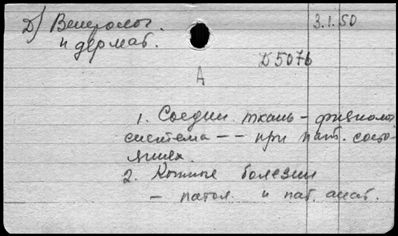 Д/ Венеролог. 3.1.50
и дермат.
Д5076
А
1. Соедин. ткань - физиолог.
система -- при пат. состо-
яниях.
2. Кожные болезни
- патол. и пат. анат.